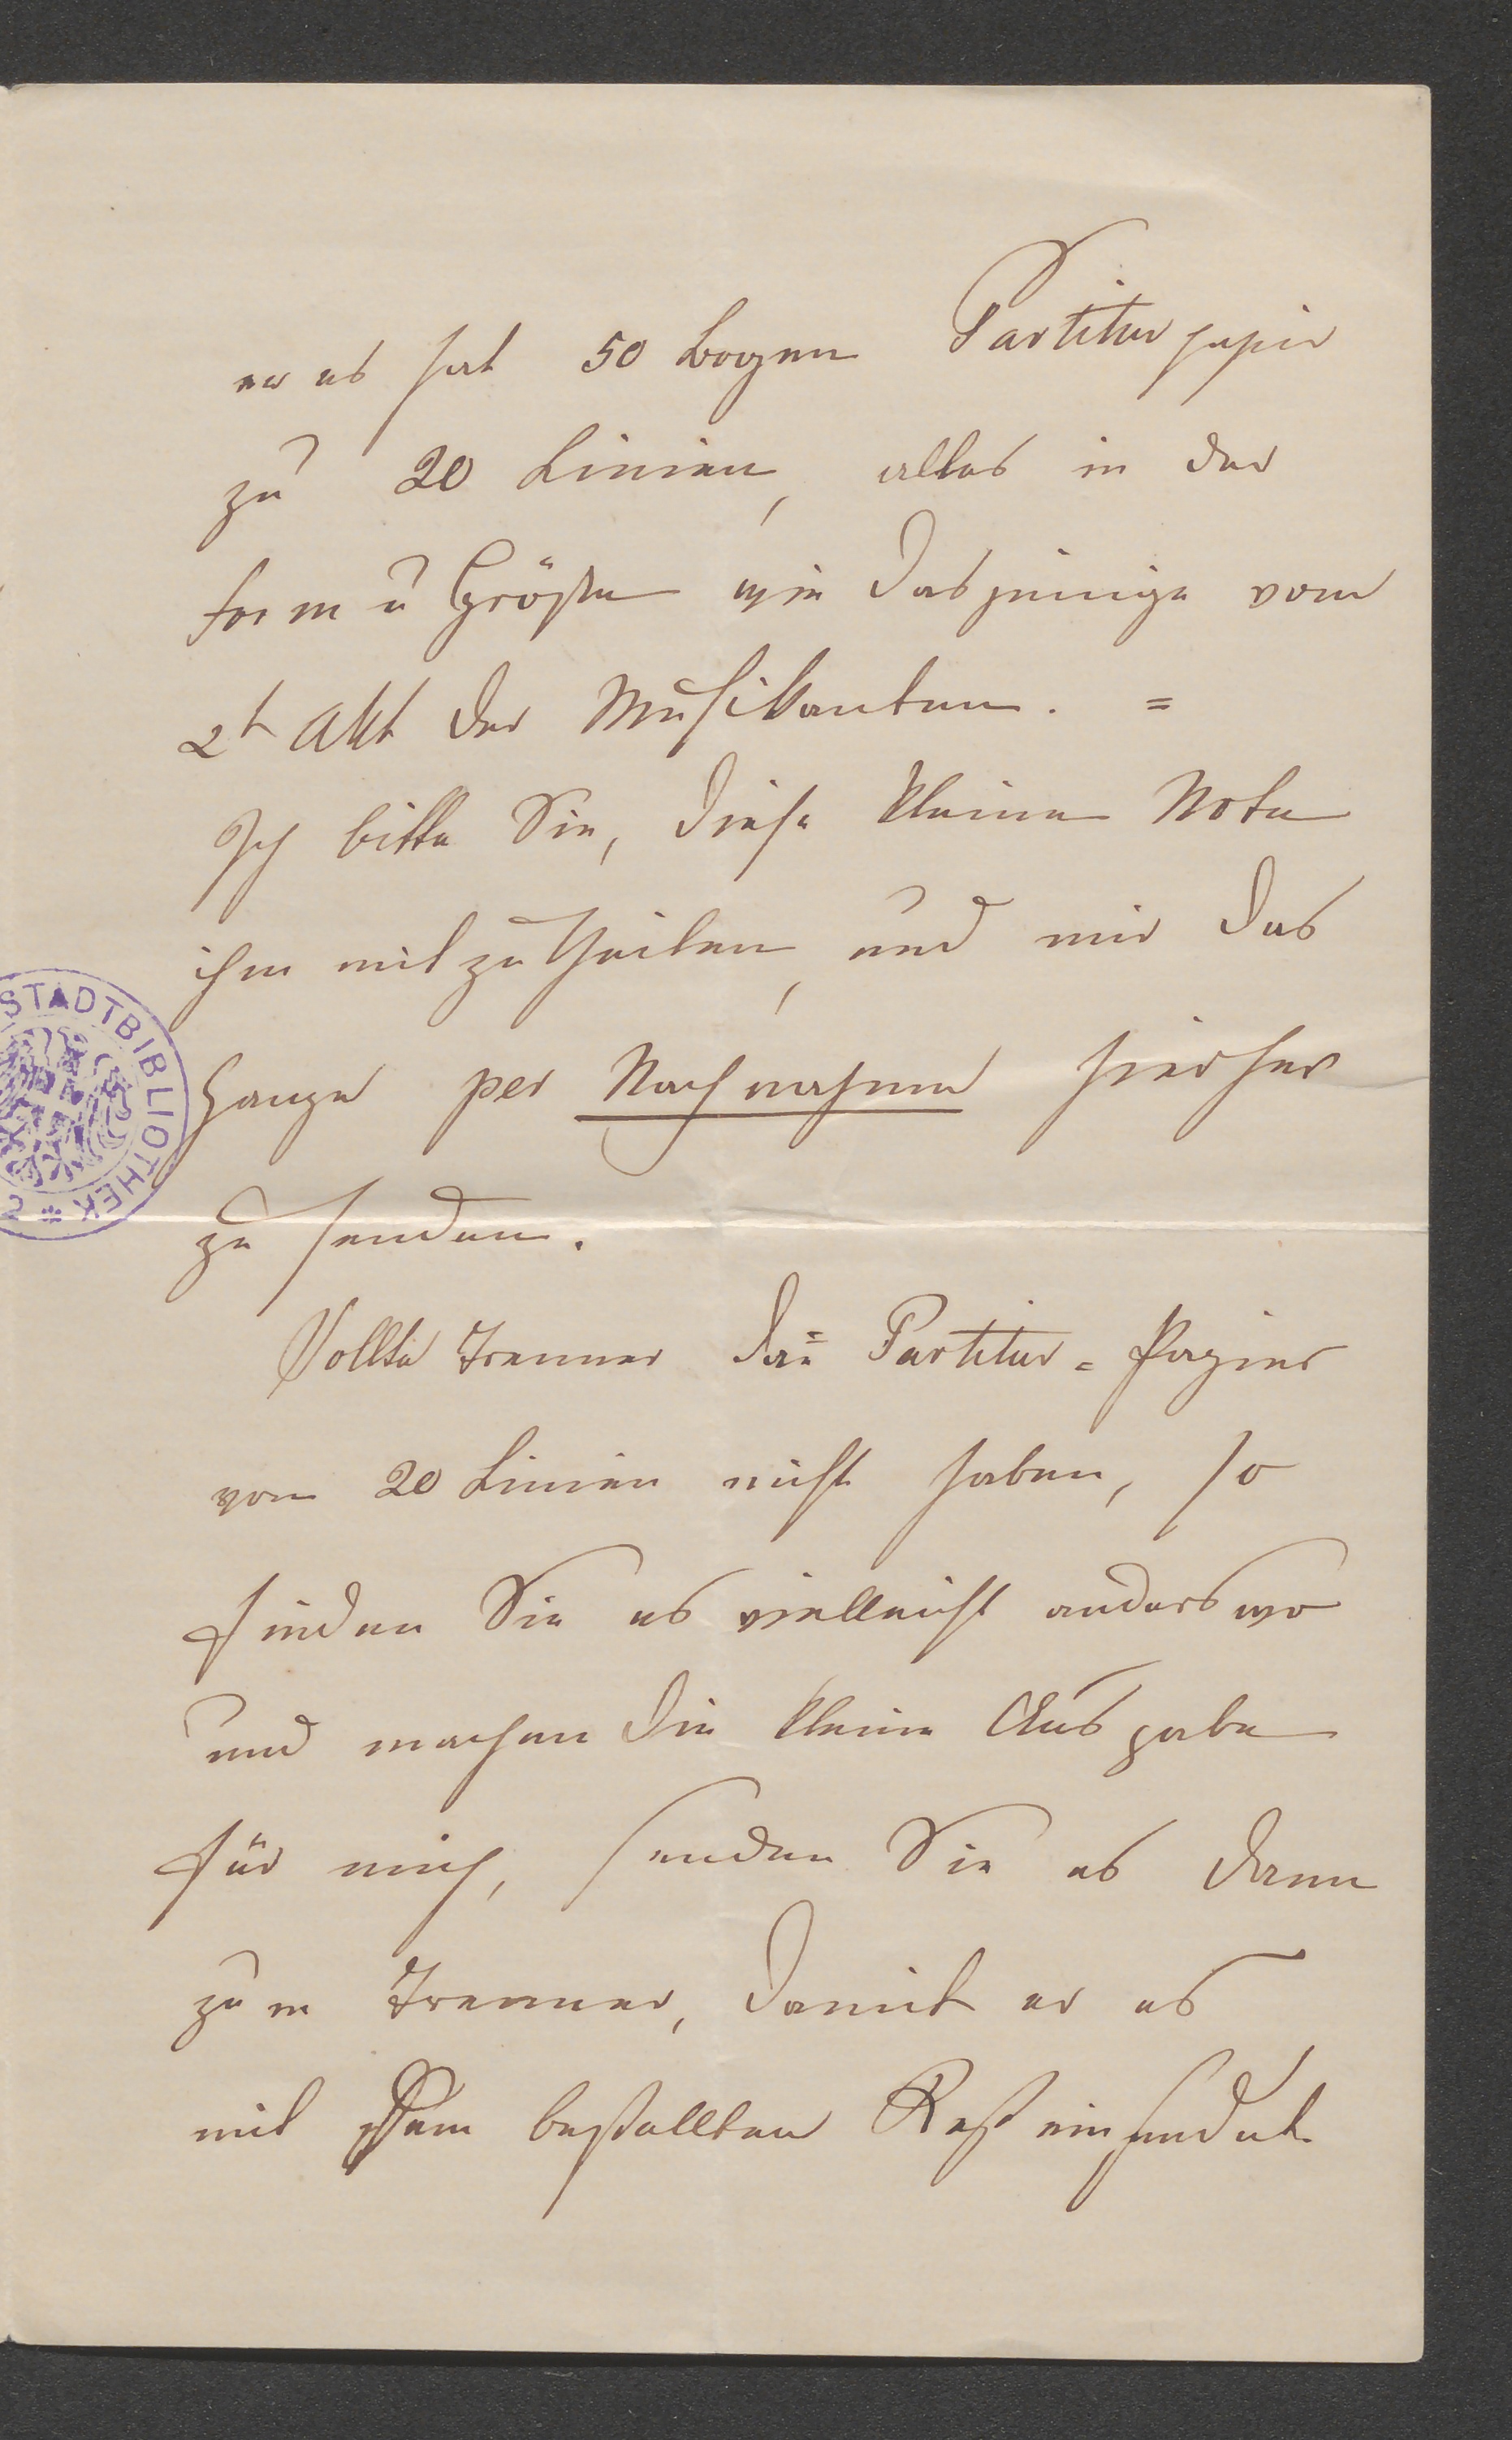 er es hat 50 Bogen Partiturpapir
zu 20 Linien, alles in der
Form u Größe wie dasjenige vom
2t Akt der Musikanten. =
Ich bitte Sie, diese kleine Note
ihm mitzutheilen, und mir das
Ganze per Nachnahme hierher
zu senden.
Sollte Trenner das Partitur= Papier
von 20 Linien nicht haben, so
finden Sie es vielleicht anderswo
und machen die kleine Ausgabe
für mich, senden Sie es dann
zum Trenner, damit er es
mit dem bestellten Rest einsendet
STADTBIBLIOTHEK